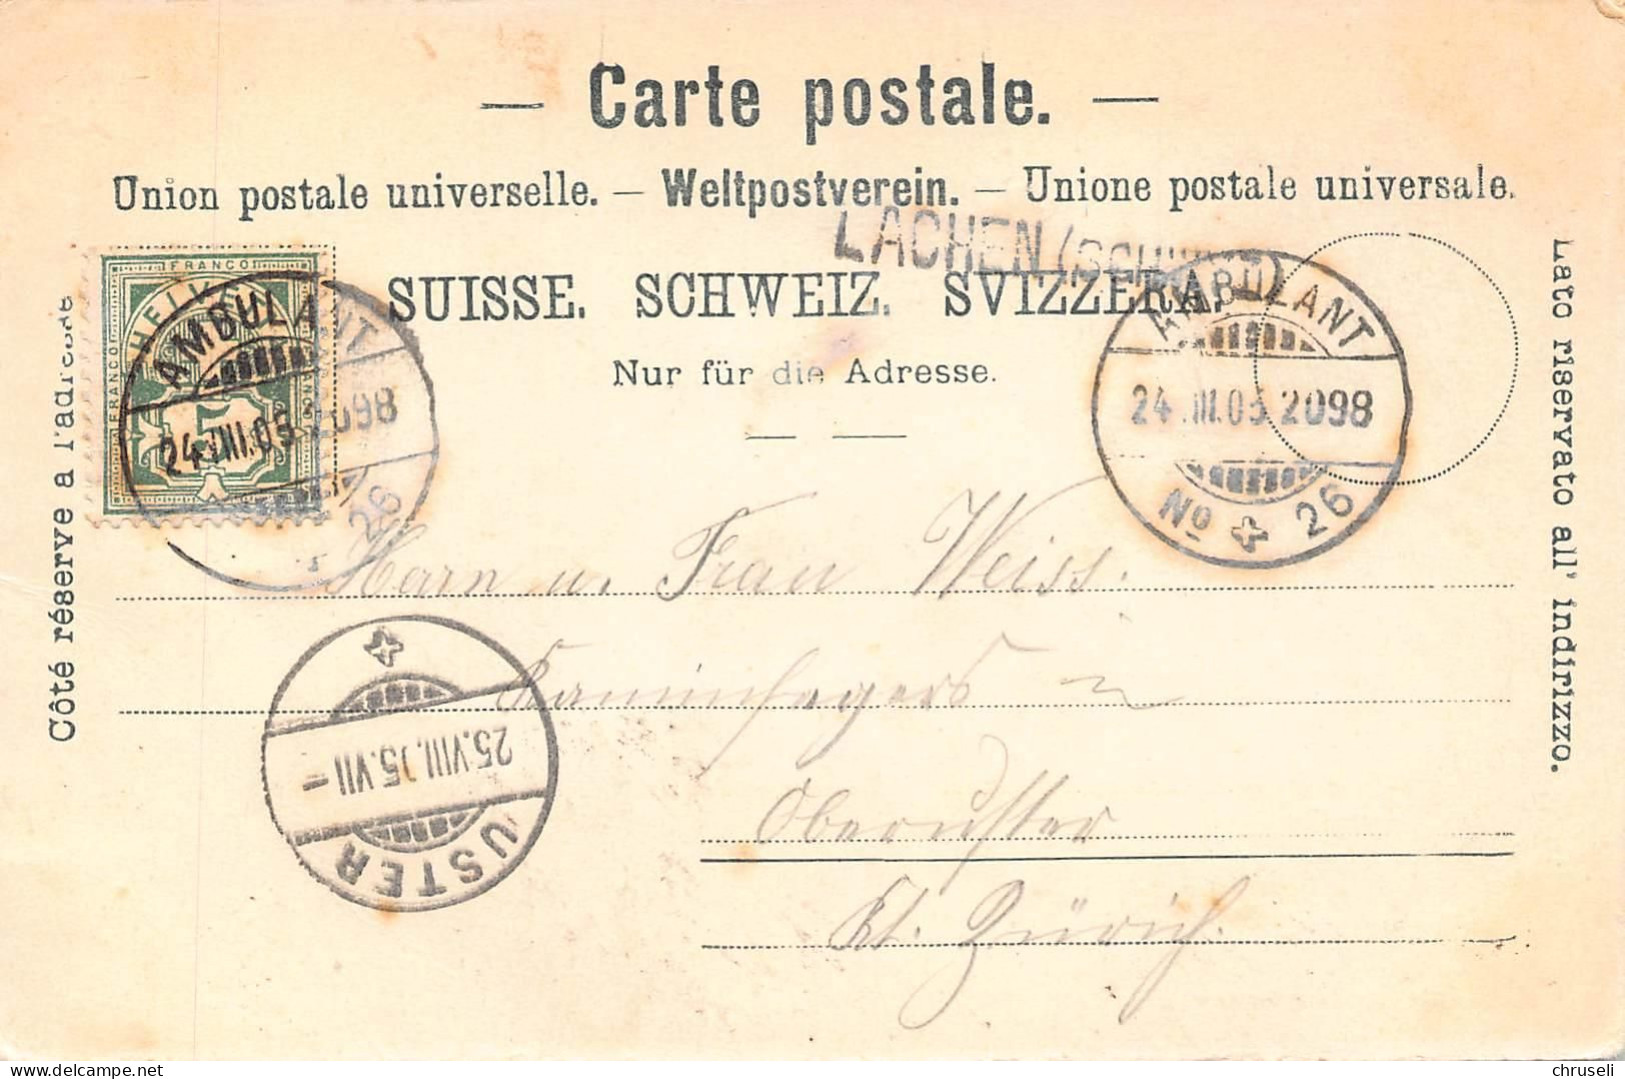 — Carte postale. —
Union postale universelle. — Weltpostverein. — Unione postale universale.
LACHEN (SCHWYZ)
SUISSE. SCHWEIZ. SVIZZERA.
Nur für die Adresse.
Côté réservé à l'adresse
Lato riservato all' indirizzo.
FRANCO
HELVETIA
FRANCO
5
AMBULANT
24.III.05 2098
26
AMBULANT
24.III.05 2098
No 26
Herrn u. Frau Weiss.
Kaminfegers
Oberuster
Kt. Zürich.
25.VIII.05.VII–
USTER
delcampe.net
chruseli